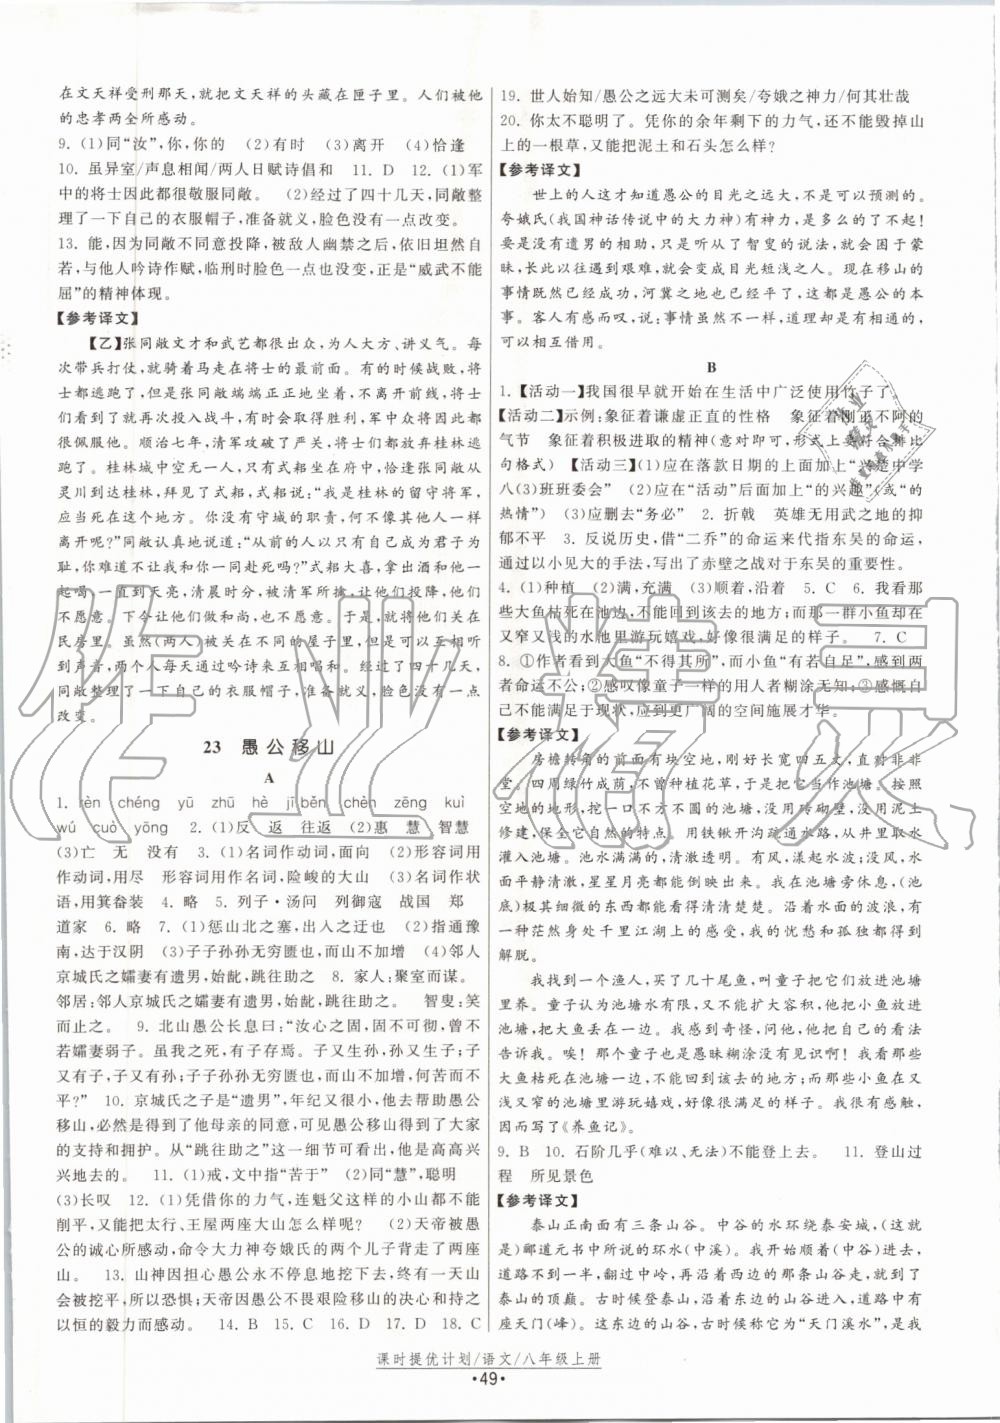 在文天祥受刑那天,就把文天祥的头藏在匣子里。人们被他
的忠孝两全所感动。
9. (1)同“汝”,你,你的　(2)有时　(3)离开　(4)恰逢
10. 虽异室/声息相闻/两人日赋诗倡和　11. D　12. (1)军
中的将士因此都很敬服同敞。　(2)经过了四十几天,同敞整
理了一下自己的衣服帽子,准备就义,脸色没有一点改变。
13. 能,因为同敞不同意投降,被敌人幽禁之后,依旧坦然自
若,与他人吟诗作赋,临刑时脸色一点也没变,正是“威武不能
屈”的精神体现。
【参考译文】
【乙】张同敞文才和武艺都很出众,为人大方、讲义气。每
次带兵打仗,就骑着马走在将士的最前面。有的时候战败,将
士都逃跑了,但是张同敞端端正正地坐着,不离开前线,将士
们看到了就再次投入战斗,有时会取得胜利,军中众将士都
很佩服他。顺治七年,清军攻破了严关,将士们全都逃跑
了。桂林城中空无一人,只有式耜还坐在府里,恰逢张同敞从
灵川到达桂林,拜见了式耜,式耜说:“我是桂林的留守将军,
应当死在这个地方。你没有守城的职责,何不像其他人一样
离开呢?”同敞认真地说道:“从前的人以只有自己成为君子为
耻,你难道不让我和你一同赴死吗?”式耜大喜,拿出酒和他一
起喝,一直到天亮,清晨时分,清军主帅派人来将他们抓住,让他们投降,他们不
不愿意。下令让他们做和尚,也不愿意。于是,就将他们关在
民房里。虽然(两人)被关在不同的屋子里,但一切都可以听
到声音,两个人每天通过吟诗来互相唱和。经过了四十几天,
同敞整理了一下自己的衣服帽子,准备就义,脸色没有一点
改变。
23　愚公移山
A
1. rèn　chéng　yū　zhū　hè　jī běn　chèn　zēng　kuì
wú　cuò　yōng　2. (1)反　返　往返　(2)惠　慧　智慧
(3)亡　无　没有　3. (1)名词作动词,面向　(2)形容词用
作动词,用尽　形容词用作名词,险峻的大山　(3)名词作状
语,用箕畚装　4. 略　5. 列子·汤问　列御寇　战国　郑
道家　6. 略　7. (1)惩山北之塞,出入之迂也　(2)指通豫
南,达于汉阴　(3)子子孙孙无穷匮也,而山不加增　(4)邻人
京城氏之孀妻有遗男,始龀,跳往助之　8. 家人:聚室而谋。
邻居:邻人京城氏之孀妻有遗男,始龀,跳往助之。　智叟:笑
而止之。　9. 北山愚公长息曰:“汝心之固,固不可彻,曾不
若孀妻弱子。虽我之死,有子存焉。子又生孙,孙又生子;子
又有子,子又有孙;子子孙孙无穷匮也,而山不加增,何苦而不
平?”　10. 京城氏之子是“遗男”,年纪又很小,他去帮助愚公
移山,必然是得到了他母亲的同意,可见愚公移山得到了大家
的支持和拥护。从“跳往助之”这一细节可看出,他是高高兴
兴地去的。　11. (1)戒,文中指“苦于”　(2)同“慧”,聪明
(3)长叹　12. (1)凭借你的力气,连魁父这样的小山都不能
削平,又能把太行、王屋两座大山怎么样呢?　(2)天帝被愚
公的诚心所感动,命令大力神夸娥氏的两个儿子背走了两座
山。　13. 山神因担心愚公永不停息地挖下去,终有一天山
会被挖平,所以恐惧;天帝因愚公不畏艰险移山的决心和持之
以恒的毅力而感动。　14. B　15. C　16. D　17. D　18. C
19. 世人始知/愚公之远大未可测矣/夸娥之神力/何其壮哉
20. 你太不聪明了。凭你的余年剩下的力气,还不能毁掉山
上的一根草,又能把泥土和石头怎么样?
【参考译文】
世上的人这才知道愚公的目光之远大,是不可以预测的。
夸娥氏(我国神话传说中的大力神)有神力,是多么的了不起!
要是没有遗男的相助,只是听从了智叟的说法,就会闭于蒙
昧,长此以往遇到艰难,就会变成目光短浅之人。现在移山的
事情既然已经成功,河冀之地也已经平了,这都是愚公的本
事。客人有感而叹,说:事情虽然不一样,道理却是有可以
互相借用。
B
1. 【活动一】我国很早就开始在生活中广泛使用竹子了
【活动二】示例:象征着谦虚正直的性格　象征着刚正不阿的
气节　象征着积极进取的精神(意对即可,形式上要符合排比
句格式)　【活动三】(1)应在落款日期的上面加上“兴是中学
八(3)班班委会”　(2)应在“活动”后面加上“的兴趣”(或“的
热情”)　(3)应删去“务必”　2. 折戟　英雄无用武之地的抑
郁不平　3. 反说历史,借“二乔”的命运来代指东吴的命运,
通过以小见大的手法,写出了赤壁之战对于东吴的重要性。
4. (1)种植　(2)满,充满　(3)顺着,沿着　5. C　6. 我看那
些大鱼枯死在池边,不能回到该去的地方;而那一群小鱼却在
又窄又浅的水池里游玩嬉戏,好像很满足的样子。　7. C
8. ①作者看到大鱼“不得其所”,而小鱼“有若自足”,感叹两
者命运不公;②感叹像童子一样的用人者糊涂无知;③感慨自
己不能满足于现状,应到更广阔的空间施展才华。
【参考译文】
房檐转角的前面有块空地,刚好长宽四五丈,直对非非
堂。四周绿竹成荫,不曾种植花草,于是把它当作池塘。按照
空地的地形,挖出一个不方不圆的池塘,没有用砖砌壁,没有用泥土
修建,保全它自然的特点。用铁锹开沟疏通水路,从井里取水
灌入池塘。池水满满的,清澈透明。有风,荡漾起水波;没风,水
面平静清澈,星星月亮都能倒映出来。我在池塘旁休息,(池
底)极其细小的东西都能看得清清楚楚。沿着水面的波浪,有
一种茫然身处千里江湖上的感受,我的忧愁和孤独都得到
解脱。
我找到一个渔人,买了几十尾鱼,叫童子把它们放进池塘
里养。童子认为池塘水有限,又不能扩大容积,他把小鱼放进池塘,
把大鱼丢弃在一边。我感到奇怪,问他,他把自己的看法
告诉我。唉!那个童子是愚昧糊涂没有见识啊!我看那些
大鱼枯死在池塘一边,不能到该去的地方;而那群小鱼在又
浅又窄的池塘里游玩嬉戏,好像很满足的样子。我很有感触,
因而写了《养鱼记》。
9. B　10. 石阶几乎(难以、无法)不能登上去。　11. 登山过
程　所见景色
【参考译文】
泰山正南面有三条山谷。中谷的水环绕泰安城,(这就
是)郦道元书中所说的环水(中溪)。我开始顺着(中谷)进去,
道路不到一半,翻过中岭,又顺着西边的山谷走,就到了泰山
的顶巅。古时候登泰山,沿着东边的山谷进入,道路中有
座天门(峰)。这东边的山谷,古时候称它为“天门溪水”,是我
课时提优计划/语文/八年级上册
·49·